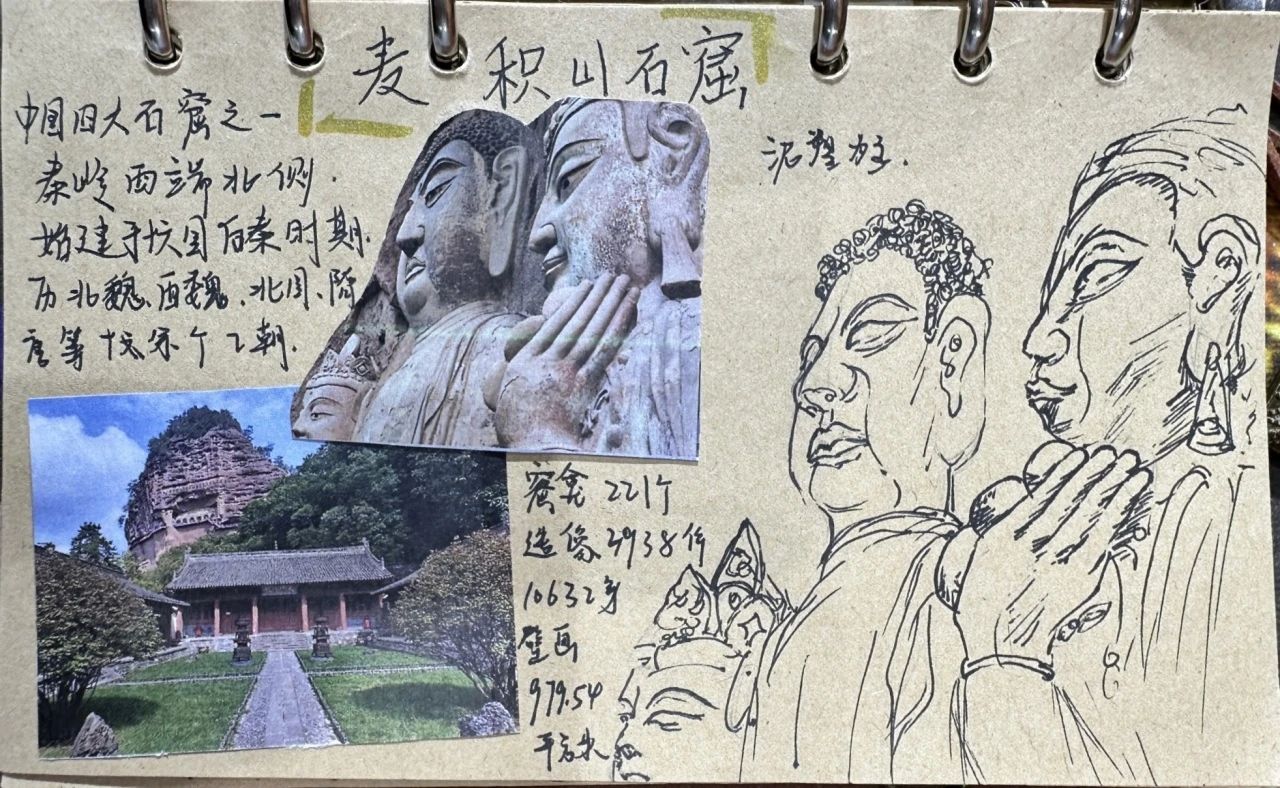 麦积山石窟
中国四大石窟之一
秦岭西端北侧.
始建于十六国后秦时期.
历北魏、西魏、北周、隋
唐等十六余个王朝.
泥塑为主.
窟龛 221个
造像 3938件
10632身
壁画
979.54
平方米